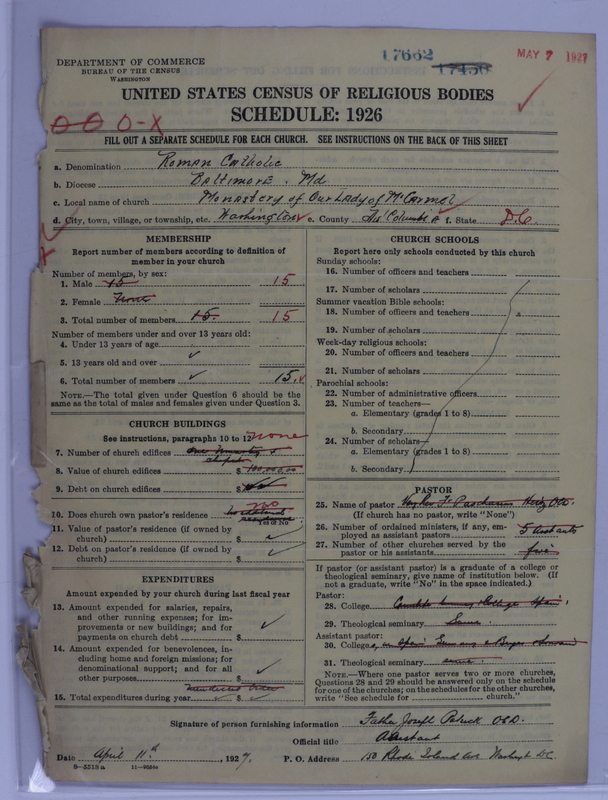 17662
17456
MAY 7 1927
DEPARTMENT OF COMMERCE
BUREAU OF THE CENSUS
WASHINGTON
UNITED STATES CENSUS OF RELIGIOUS BODIES
SCHEDULE: 1926
O O O-X
FILL OUT A SEPARATE SCHEDULE FOR EACH CHURCH. SEE INSTRUCTIONS ON THE BACK OF THIS SHEET
a. Denomination Roman Catholic
b. Diocese Baltimore. Md
c. Local name of church Monastery of Our Lady of Mt Carmel
d. City, town, village, or township, etc. Washington e. County f. State D.C.
MEMBERSHIP
Report number of members according to definition of member in your church
Number of members, by sex:
1. Male 15 15
2. Female None
3. Total number of members 15 15
Number of members under and over 13 years old:
4. Under 13 years of age
5. 13 years old and over
6. Total number of members 15
NOTE.—The total given under Question 6 should be the same as the total of males and females given under Question 3.
CHURCH BUILDINGS
See instructions, paragraphs 10 to 12 none
7. Number of church edifices chapel
8. Value of church edifices $ 100,000.00
9. Debt on church edifices $
10. Does church own pastor's residence no
Yes or No
11. Value of pastor's residence (if owned by church) $
12. Debt on pastor's residence (if owned by church) $
EXPENDITURES
Amount expended by your church during last fiscal year
13. Amount expended for salaries, repairs, and other running expenses; for improvements or new buildings; and for payments on church debt $
14. Amount expended for benevolences, including home and foreign missions; for denominational support; and for all other purposes $
Mendicant Order
15. Total expenditures during year $
CHURCH SCHOOLS
Report here only schools conducted by this church
Sunday schools:
16. Number of officers and teachers
17. Number of scholars
Summer vacation Bible schools:
18. Number of officers and teachers
19. Number of scholars
Week-day religious schools:
20. Number of officers and teachers
21. Number of scholars
Parochial schools:
22. Number of administrative officers
23. Number of teachers—
a. Elementary (grades 1 to 8)
b. Secondary
24. Number of scholars—
a. Elementary (grades 1 to 8)
b. Secondary
PASTOR
25. Name of pastor
(If church has no pastor, write "None")
26. Number of ordained ministers, if any, employed as assistant pastors 5
27. Number of other churches served by the pastor or his assistants five
If pastor (or assistant pastor) is a graduate of a college or theological seminary, give name of institution below. (If not a graduate, write "No" in the space indicated.)
Pastor:
28. College
29. Theological seminary Same
Assistant pastor:
30. College
31. Theological seminary same
NOTE.—Where one pastor serves two or more churches, Questions 28 and 29 should be answered only on the schedule for one of the churches; on the schedules for the other churches, write "See schedule for church."
Signature of person furnishing information Father Joseph Patrick OCD.
Official title Assistant
Date April 11th, 1927. P. O. Address 150 Rhode Island Ave Washingt DC
8—5518a 11—9554